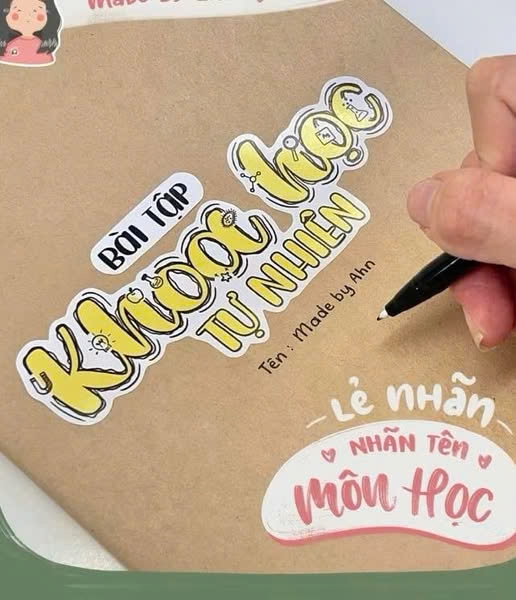 Made by
BÀI TẬP
Khoa học
TỰ NHIÊN
Tên : Made by Ahn
LẺ NHÃN
NHÃN TÊN
MÔN HỌC